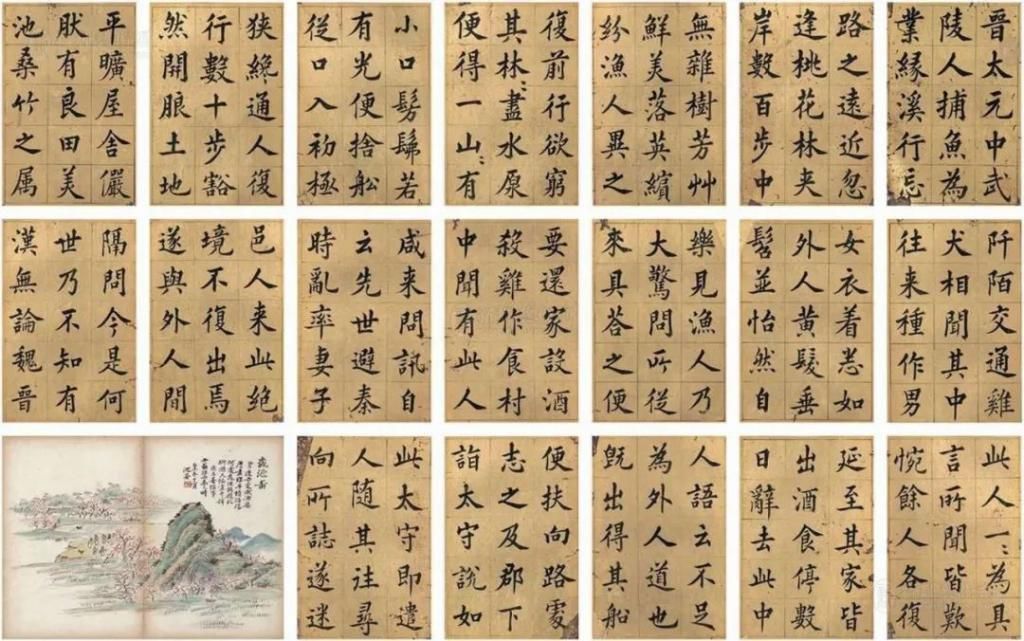 晉太元中武
陵人捕魚為
業緣溪行忘
路之遠近忽
逢桃花林夾
岸數百步中
無雜樹芳艸
鮮美落英繽
紛漁人異之
復前行欲窮
其林〻盡水原
便得一山〻有
小口髣髴若
有光便捨船
從口入初極
狹纔通人復
行數十步豁
然開朖土地
平曠屋舍儼
肰有良田美
池桑竹之属
阡陌交通雞
犬相聞其中
往来種作男
女衣着悉如
外人黄髮垂
髫並怡然自
樂見漁人乃
大驚問所從
來具荅之便
要還家設酒
殺雞作食村
中聞有此人
咸来問訊自
云先世避秦
時亂率妻子
邑人来此絶
境不復出焉
遂與外人間
隔問今是何
世乃不知有
漢無論魏晉
此人一〻為具
言所聞皆歎
惋餘人各復
延至其家皆
出酒食停數
日辭去此中
人語云不足
為外人道也
既出得其船
便扶向路處
志之及郡下
詣太守說如
此太守即遣
人隨其往尋
向所誌遂迷